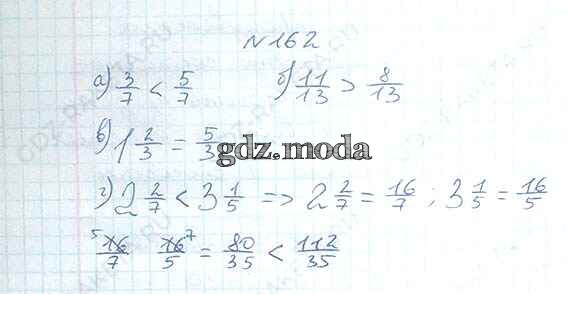 №162
а) 3/7 < 5/7 б) 11/13 > 8/13
в) 1 2/3 = 5/3
gdz.moda
г) 2 2/7 < 3 1/5 => 2 2/7 = 16/7 ; 3 1/5 = 16/5
⁵16/7 16⁷/5 = 80/35 < 112/35